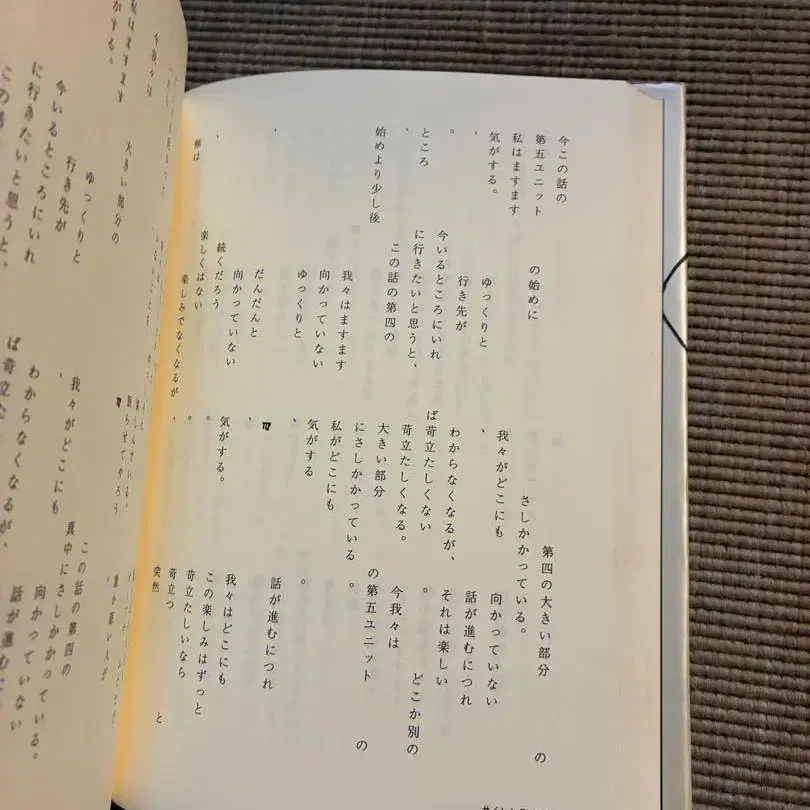 今この話の 第四の大きい部分 の
第五ユニット の始めに さしかかっている。
私はますます 我々がどこにも 向かっていない
気がする。 ゆっくりと 、 話が進むにつれ
、 行き先が わからなくなるが、 それは楽しい
。 今いるところにいれ ば苛立たしくない 。 どこか別の
ところ に行きたいと思うと、 苛立たしくなる。 今我々は
、 この話の第四の 大きい部分 の第五ユニット の
始めより少し後 にさしかかっている 。
我々はますます 私がどこにも
向かっていない 気がする 。
ゆっくりと 、 話が進むにつれ
、 だんだんと 、 我々はどこにも
向かっていない 気がする。 この楽しみはずっと
続くだろう 。 苛立たしいなら
、 楽しくはない 。 苛立つ
無は 楽しみでなくなるが 、 突然 と
私はますます
がする。
今我々は
大きい部分の
ゆっくりと
行き先が
今いるところにいれ
に行きたいと思うと、
この話の第四の
真中にさしかかっている。
我々がどこにも 向かっていない
わからなくなるが、 話が進む